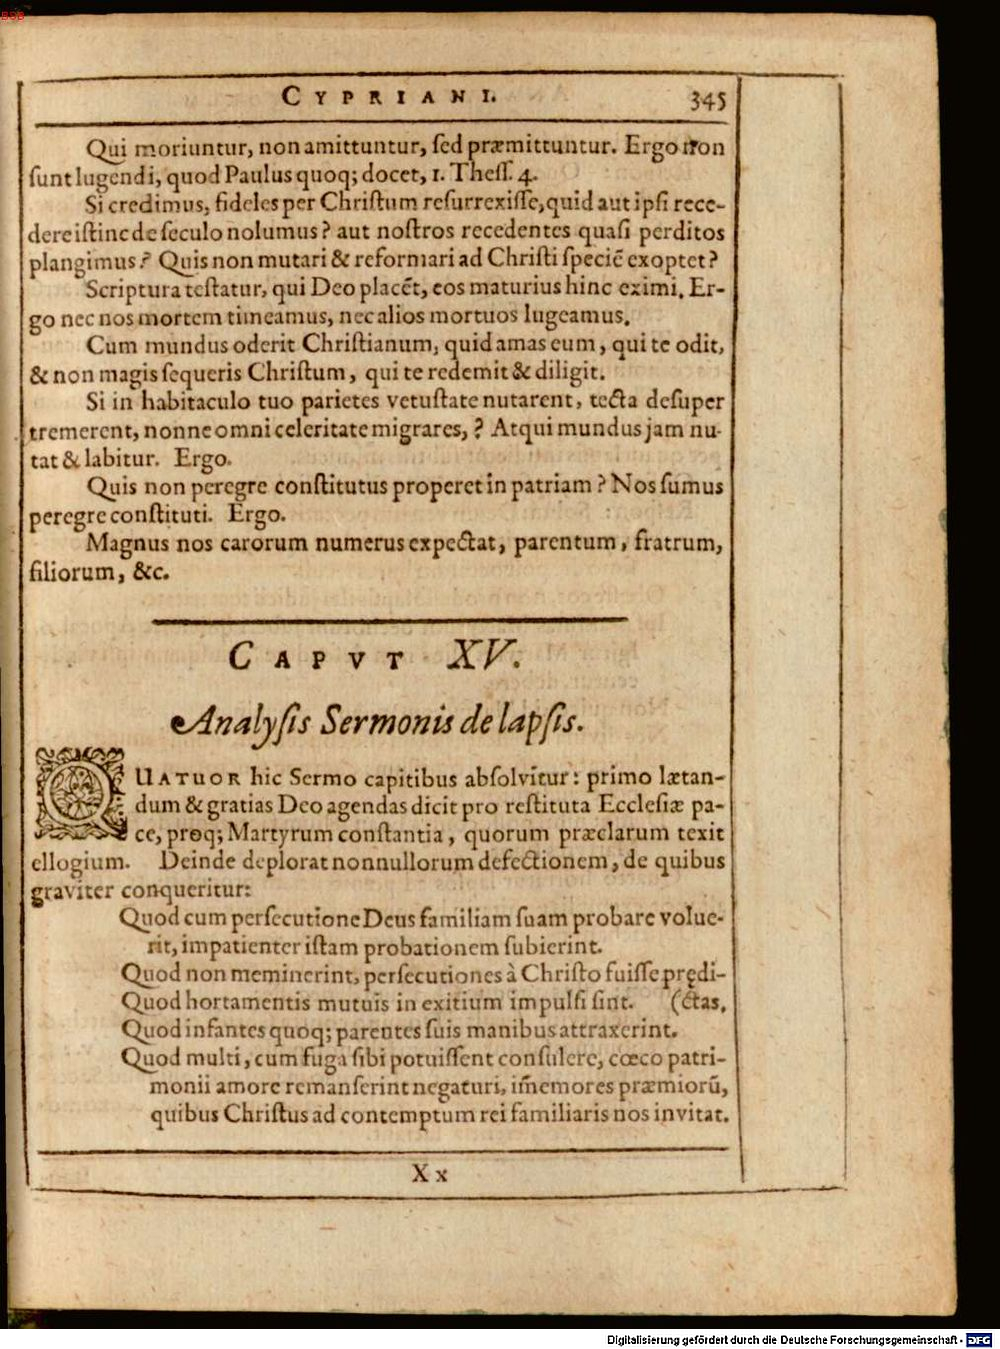 BSB
CYPRIANI. 345
Qui moriuntur, non amittuntur, ſed præmittuntur. Ergo non
ſunt lugendi, quod Paulus quoq; docet, 1. Theſſ. 4.
Si credimus, fideles per Chriſtum reſurrexiſſe, quid aut ipſi rece-
dere iſtinc de ſeculo nolumus? aut noſtros recedentes quaſi perditos
plangimus? Quis non mutari & reformari ad Chriſti ſpeciẽ exoptet?
Scriptura teſtatur, qui Deo placẽt, eos maturius hinc eximi. Er-
go nec nos mortem timeamus, nec alios mortuos lugeamus.
Cum mundus oderit Chriſtianum, quid amas eum, qui te odit,
& non magis ſequeris Chriſtum, qui te redemit & diligit.
Si in habitaculo tuo parietes vetuſtate nutarent, tecta deſuper
tremerent, nonne omni celeritate migrares, ? Atqui mundus jam nu-
tat & labitur. Ergo.
Quis non peregre conſtitutus properet in patriam? Nos ſumus
peregre conſtituti. Ergo.
Magnus nos carorum numerus expectat, parentum, fratrum,
filiorum, &c.
CAPVT XV.
Analyſis Sermonis de lapſis.
QUATUOR hic Sermo capitibus abſolvitur: primo lætan-
dum & gratias Deo agendas dicit pro reſtituta Eccleſiæ pa-
ce, proq; Martyrum conſtantia, quorum præclarum texit
ellogium. Deinde deplorat nonnullorum defectionem, de quibus
graviter conqueritur:
Quod cum perſecutione Deus familiam ſuam probare volue-
rit, impatienter iſtam probationem ſubierint.
Quod non meminerint, perſecutiones à Chriſto fuiſſe prędi-
Quod hortamentis mutuis in exitium impulſi ſint. (ctas,
Quod infantes quoq; parentes ſuis manibus attraxerint.
Quod multi, cum fuga ſibi potuiſſent conſulere, cœco patri-
monii amore remanſerint negaturi, im̃emores præmiorũ,
quibus Chriſtus ad contemptum rei familiaris nos invitat.
Xx
Digitalisierung gefördert durch die Deutsche Forschungsgemeinschaft - DFG